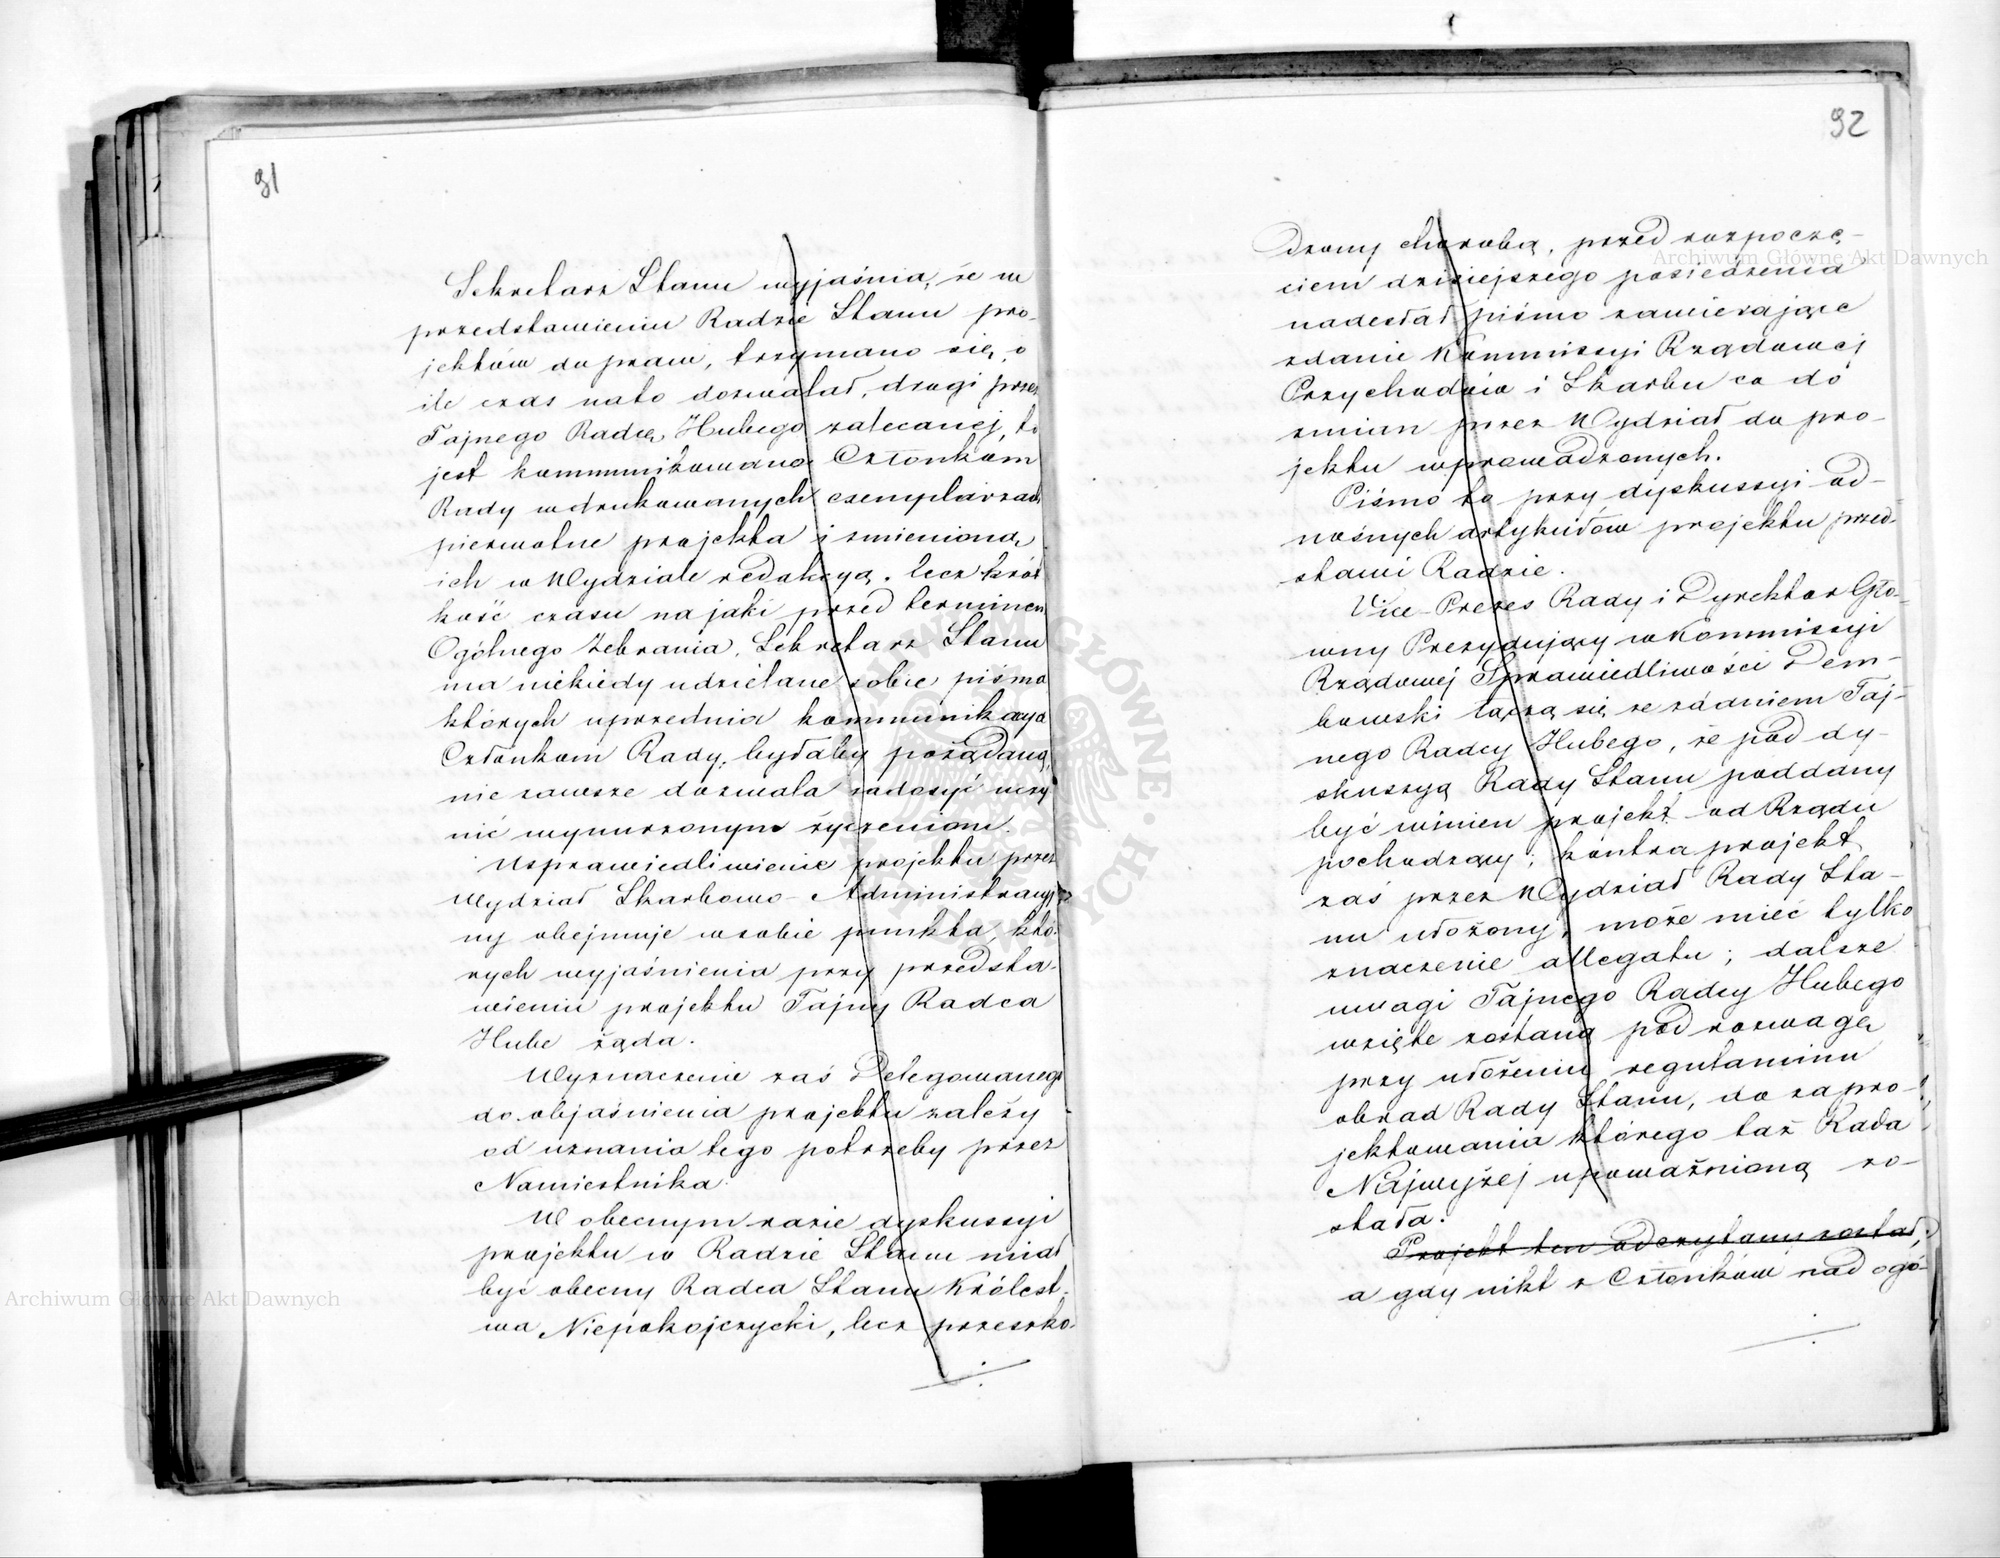 91
Sekretarz Stanu wyjaśnia, że w
przedstawieniu Radzie Stanu pro-
jektów do praw, trzymano się, o
ile czas na to dozwalał, drogi przez
Tajnego Radcę Hubego zalecanej, to
jest kommunikowano Członkom
Rady w drukowanych exemplarzach
pierwotne projekta i zmienioną
ich w Wydziale redakcyą. lecz krót
kość czasu na jaki przed terminem
Ogólnego Zebrania, Sekretarz Stanu
ma niekiedy udzielane sobie pisma
których uprzednia kommunikacya
Członkom Rady, byłaby pożądaną,
nie zawsze dozwala zadosyć uczy
nić wynurzonym życzeniom.
Usprawiedliwienie projektu przez
Wydział Skarbowo-Administracyj
ny obejmuje w sobie punkta, któ-
rych wyjaśnienia przy przedsta-
wieniu projektu Tajny Radca
Hube żąda.
Wyznaczenie zaś Delegowanego
do objaśnienia projektu zależy
od uznania tego potrzeby przez
Namiestnika.
W obecnym razie dyskussyi
projektu w Radzie Stanu miał
być obecny Radca Stanu Królest-
wa Niepokojczycki, lecz przeszko-
92
dzony chorobą, przed rozpoczę-
ciem dzisiejszego posiedzenia
nadesłał pismo zawierające
zdanie Kommissyi Rządowej
Przychodów i Skarbu co do
zmian przez Wydział do pro-
jektu wprowadzonych.
Pismo to przy dyskussyi od-
nośnych artykułów projektu przed-
stawi Radzie.
Vice-Prezes Rady i Dyrektor Głó-
wny Prezydujący w Kommissyi
Rządowej Sprawiedliwości Dem-
bowski łączą się ze zdaniem Taj-
nego Radcy Hubego, że pod dy-
skussyą Rady Stanu poddany
być winien projekt od Rządu
pochodzący; kontra projekt
zaś przez Wydział Rady Sta-
nu ułożony, może mieć tylko
znaczenie allegatu; dalsze
uwagi Tajnego Radcy Hubego
wzięte zostaną pod rozwagę
przy ułożeniu regulaminu
obrad Rady Stanu, do zapro-
jektowania którego taż Rada
Najwyżej upoważnioną zo-
stała.
Projekt ten odczytany został,
a gdy nikt z Członków nad ogó-
Archiwum Główne Akt Dawnych
Archiwum Główne Akt Dawnych